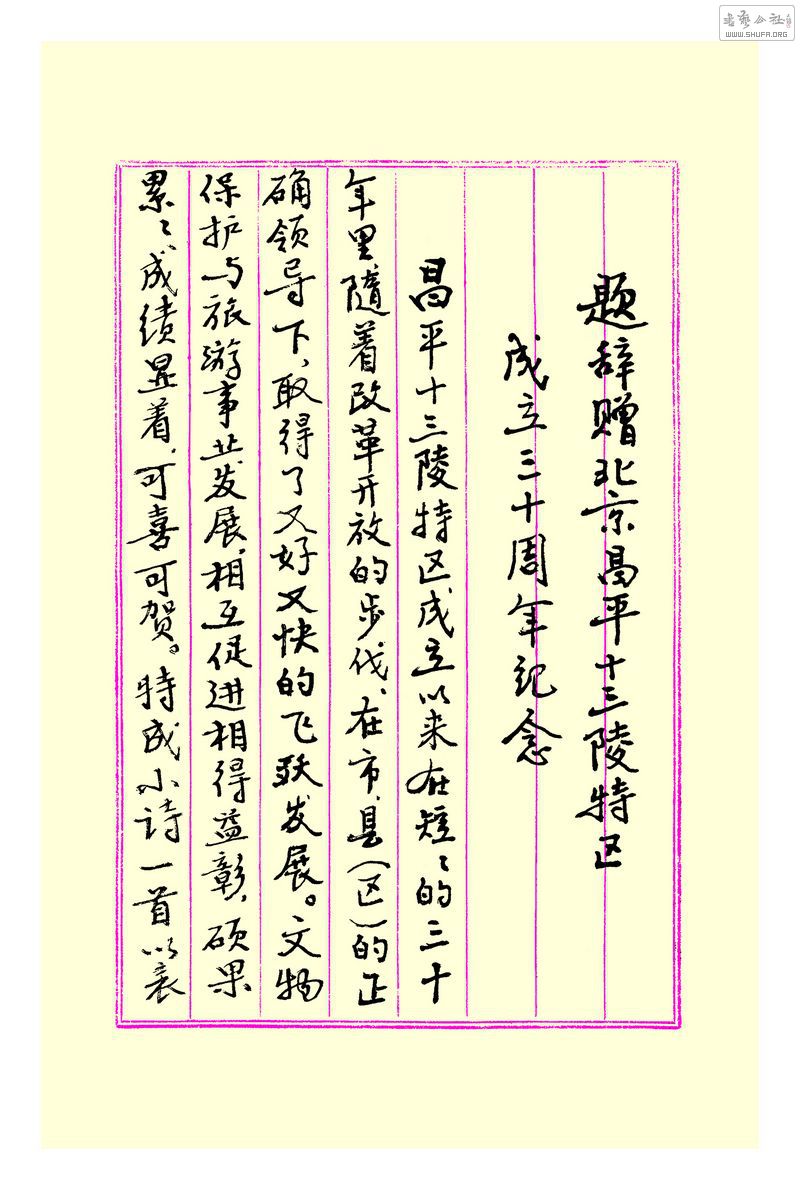 题辞赠北京昌平十三陵特区
成立三十周年纪念
昌平十三陵特区成立以来在短〻的三十
年里,随着改革开放的步伐,在市、县(区)的正
确领导下,取得了又好又快的飞跃发展。文物
保护与旅游事业发展,相互促进相得益彰,硕果
累〻,成绩显着,可喜可贺。特成小诗一首以表
書藝公社
WWW.SHUFA.ORG